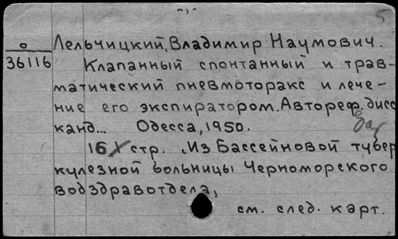 5
о Лельчицкий, Владимир Наумович.
36116 Клапанный спонтанный и трав-
матический пневмоторакс и лече-
ние его экспиратором. Автореф. дисс
канд... Одесса, 1950.
16 стр. Из Бассейновой тубер
кулезной больницы Черноморского
водздравотдела,
см. след. карт.